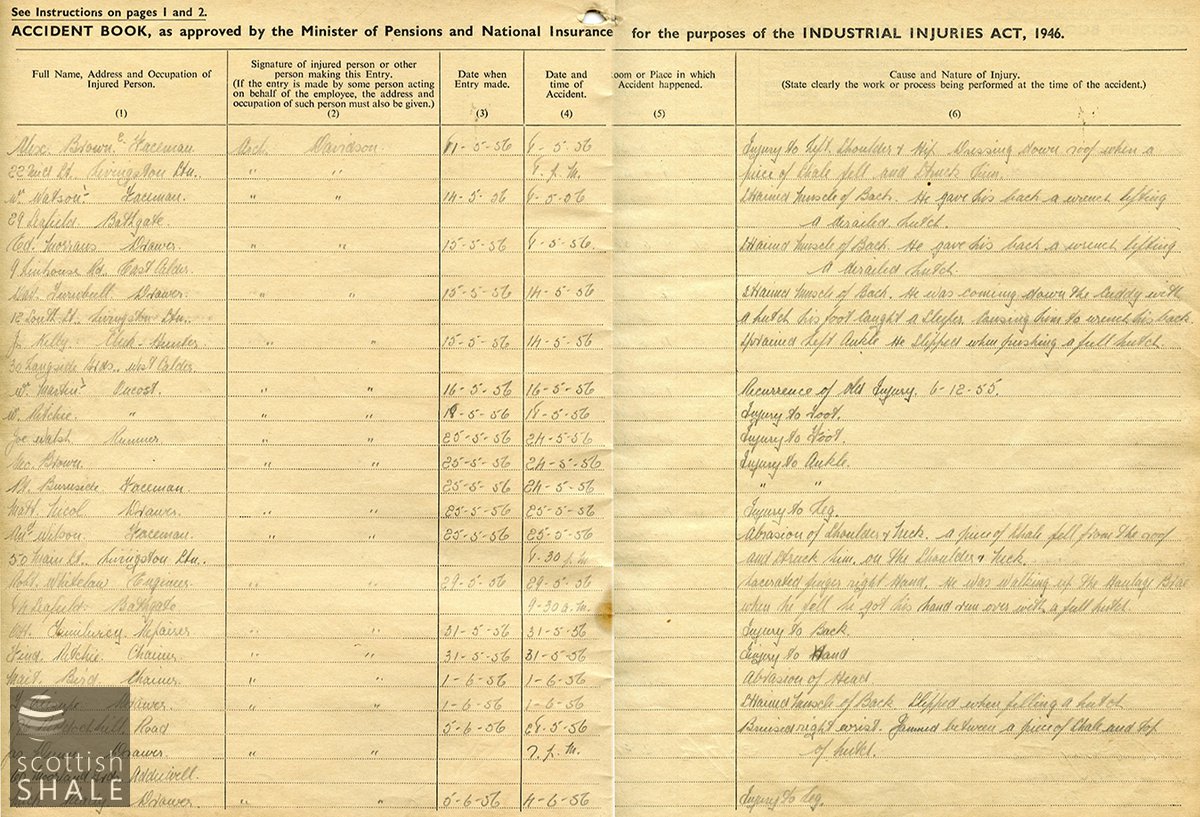 See Instructions on pages 1 and 2.
ACCIDENT BOOK, as approved by the Minister of Pensions and National Insurance for the purposes of the INDUSTRIAL INJURIES ACT, 1946.
Full Name, Address and Occupation of Injured Person. (1)
Signature of injured person or other person making this Entry. (If the entry is made by some person acting on behalf of the employee, the address and occupation of such person must also be given.) (2)
Date when Entry made. (3)
Date and time of Accident. (4)
oom or Place in which Accident happened. (5)
Cause and Nature of Injury. (State clearly the work or process being performed at the time of the accident.) (6)
Alex. Brown Faceman. Arch. Davidson 11-5-56 -5-56 Injury to Left Shoulder & Hip. Dressing down roof when a
22 St. Livingston Stn. " " p.m. piece of Shale fell and Struck him.
W. Watson Faceman. " " 14-5-56 -5-56 Strained Muscle of Back. He gave his back a wrench lifting
29 Leafield. Bathgate a derailed hutch.
Ed. Morrans Drawer. " " 15-5-56 -5-56. Strained Muscle of Back. He gave his back a wrench lifting
9 Linhouse Rd., East Calder. a derailed hutch.
Turnbull. Drawer. " " 15-5-56 14-5-56 Strained Muscle of Back. He was coming down the Cuddy with
12 South St., Livingston Stn.. a hutch his foot caught a Sleeper. Causing him to wrench his back.
Js. Kelly. Hunter " " 15-5-56 14-5-56 Sprained Left Ankle He Slipped when pushing a full hutch.
30 Langside West Calder.
W. Martin Oncost. " " 16-5-56 16-5-56 Recurrence of Old Injury. 6-12-55.
W. Ritchie. " " " -5-56 -5-56 Injury to Foot.
Joe Walsh. " " 25-5-56 24-5-56 Injury to Foot.
Geo. Brown. " " 25-5-56 24-5-56 Injury to Ankle.
Burnside. Faceman. " " 25-5-56 24-5-56 " "
Matt. Nicol Drawer. " " 25-5-56 25-5-56 Injury to Leg.
Wilson. Faceman. " " 25-5-56 25-5-56 Abrasion of Shoulder & Neck. A piece of Shale fell from the roof
50 Main St., Livingston Stn. -30 p.m and Struck him on the Shoulder & Neck.
Robt. Whitelaw Engineer " " 29-5-56 29-5-56 Lacerated finger right Hand. He was walking up the Haulage Brae
Leafield. Bathgate 9-30 a.m. when he fell he got his hand run over with a full hutch.
Repairer " " 31-5-56 31-5-56 Injury to Back.
Ritchie. Chainer " " 31-5-56 31-5-56 Injury to Hand
Bird. Chainer. " " 1-6-56 1-6-56 Abrasion of Head
Drawer. " " 1-6-56 1-6-56 Strained Muscle of Back Slipped when filling a hutch
Road 5-6-56 -5-56 Bruised right wrist. Jammed between a piece of Shale and top
Drawer. " " 7. p.m. of hutch.
Addiewell.
Drawer " " 5-6-56 4-6-56 Injury to Leg.
scottish
SHALE